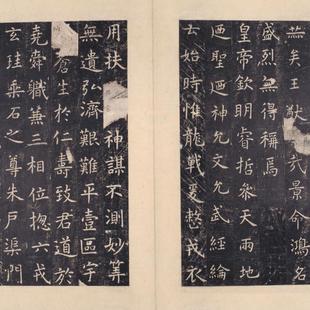 矣王猷哉景命鴻名
盛烈無得稱焉
皇帝欽明睿哲參天兩地
迺聖迺神允文允武經綸
云始時惟龍戰爰整戎衣
用扶神謀不測妙筭
無遺弘濟艱難平壹區宇
蒼生於仁壽致君道於
堯舜職兼三相位摠六戎
玄珪乘石之尊朱戶渠門